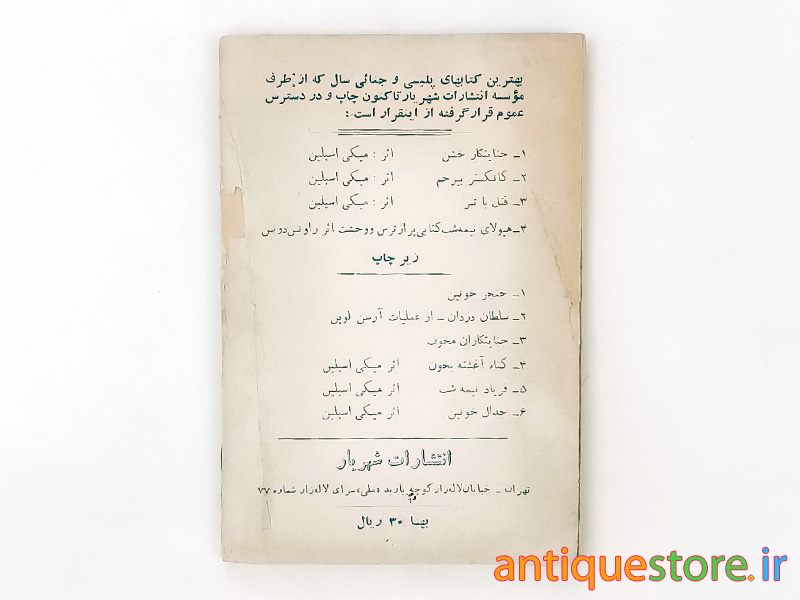 بهترین کتابهای پلیسی و جنائی سال که از طرف
مؤسسه انتشارات شهریار تاکنون چاپ و در دسترس
عموم قرار گرفته از اینقرار است:
۱ـ جنایتکار خشن اثر : میکی اسپلین
۲ـ گانگستر بیرحم اثر : میکی اسپلین
۳ـ قتل با تبر اثر : میکی اسپلین
۴ـ هیولای نیمه شب کتابی پر از ترس و وحشت اثر
زیر چاپ
۱ـ خنجر خونین
۲ـ سلطان دزدان ـ از عملیات آرسن لوپن
۳ـ جنایتکاران مخوف
۴ـ گناه آغشته بخون اثر میکی اسپلین
۵ـ فریاد نیمه شب اثر میکی اسپلین
۶ـ جدال خونین اثر میکی اسپلین
انتشارات شهریار
تهران ـ خیابان لاله زار کوچه باربد «ملی» سرای لاله زار شماره ۷۷
بها ۳۰ ریال
antiquestore.ir